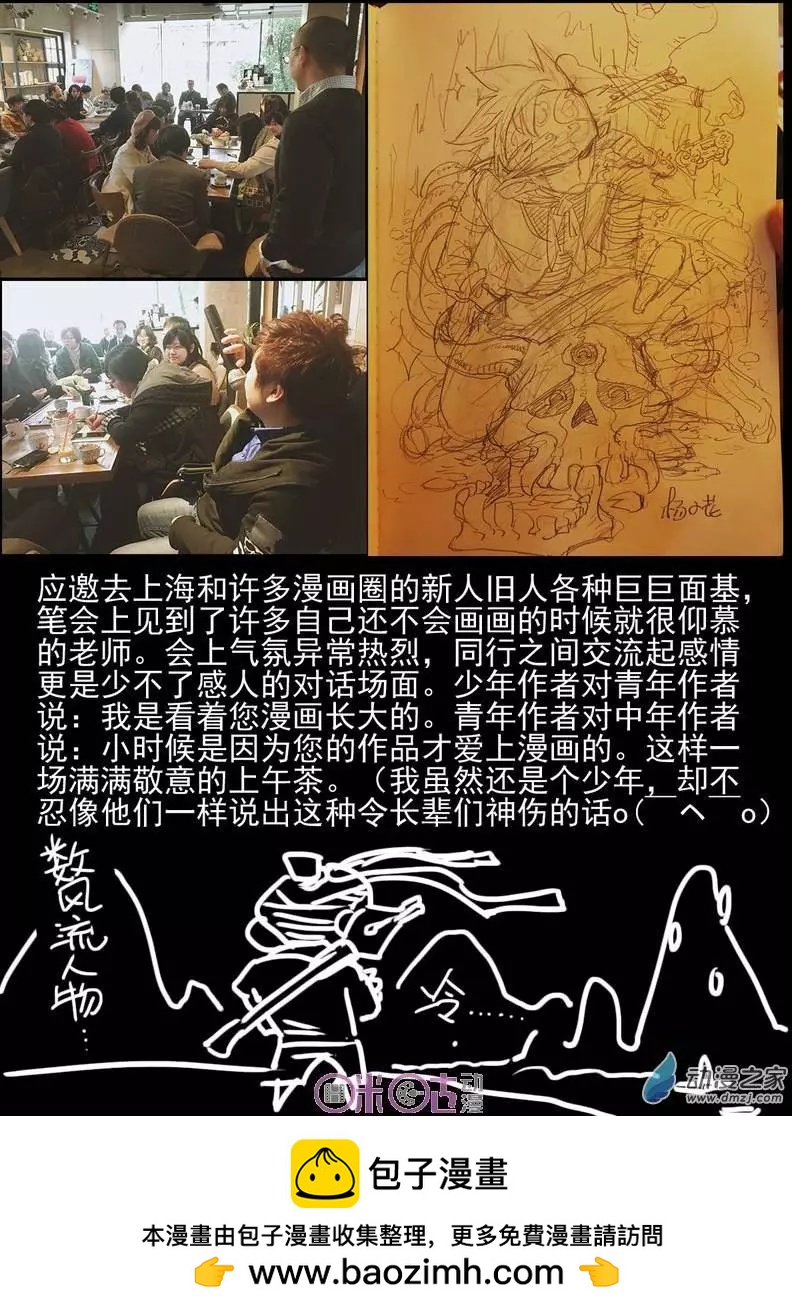 杨小老
应邀去上海和许多漫画圈的新人旧人各种巨巨面基，
笔会上见到了许多自己还不会画画的时候就很仰慕
的老师。会上气氛异常热烈，同行之间交流起感情
更是少不了感人的对话场面。少年作者对青年作者
说：我是看着您漫画长大的。青年作者对中年作者
说：小时候是因为您的作品才爱上漫画的。这样一
场满满敬意的上午茶。（我虽然还是个少年，却不
忍像他们一样说出这种令长辈们神伤的话o(￣ヘ￣o)
数风流人物…
冷……
咪咕动漫
动漫之家
www.dmzj.com
包子漫畫
本漫畫由包子漫畫收集整理，更多免費漫畫請訪問
👉 www.baozimh.com 👈